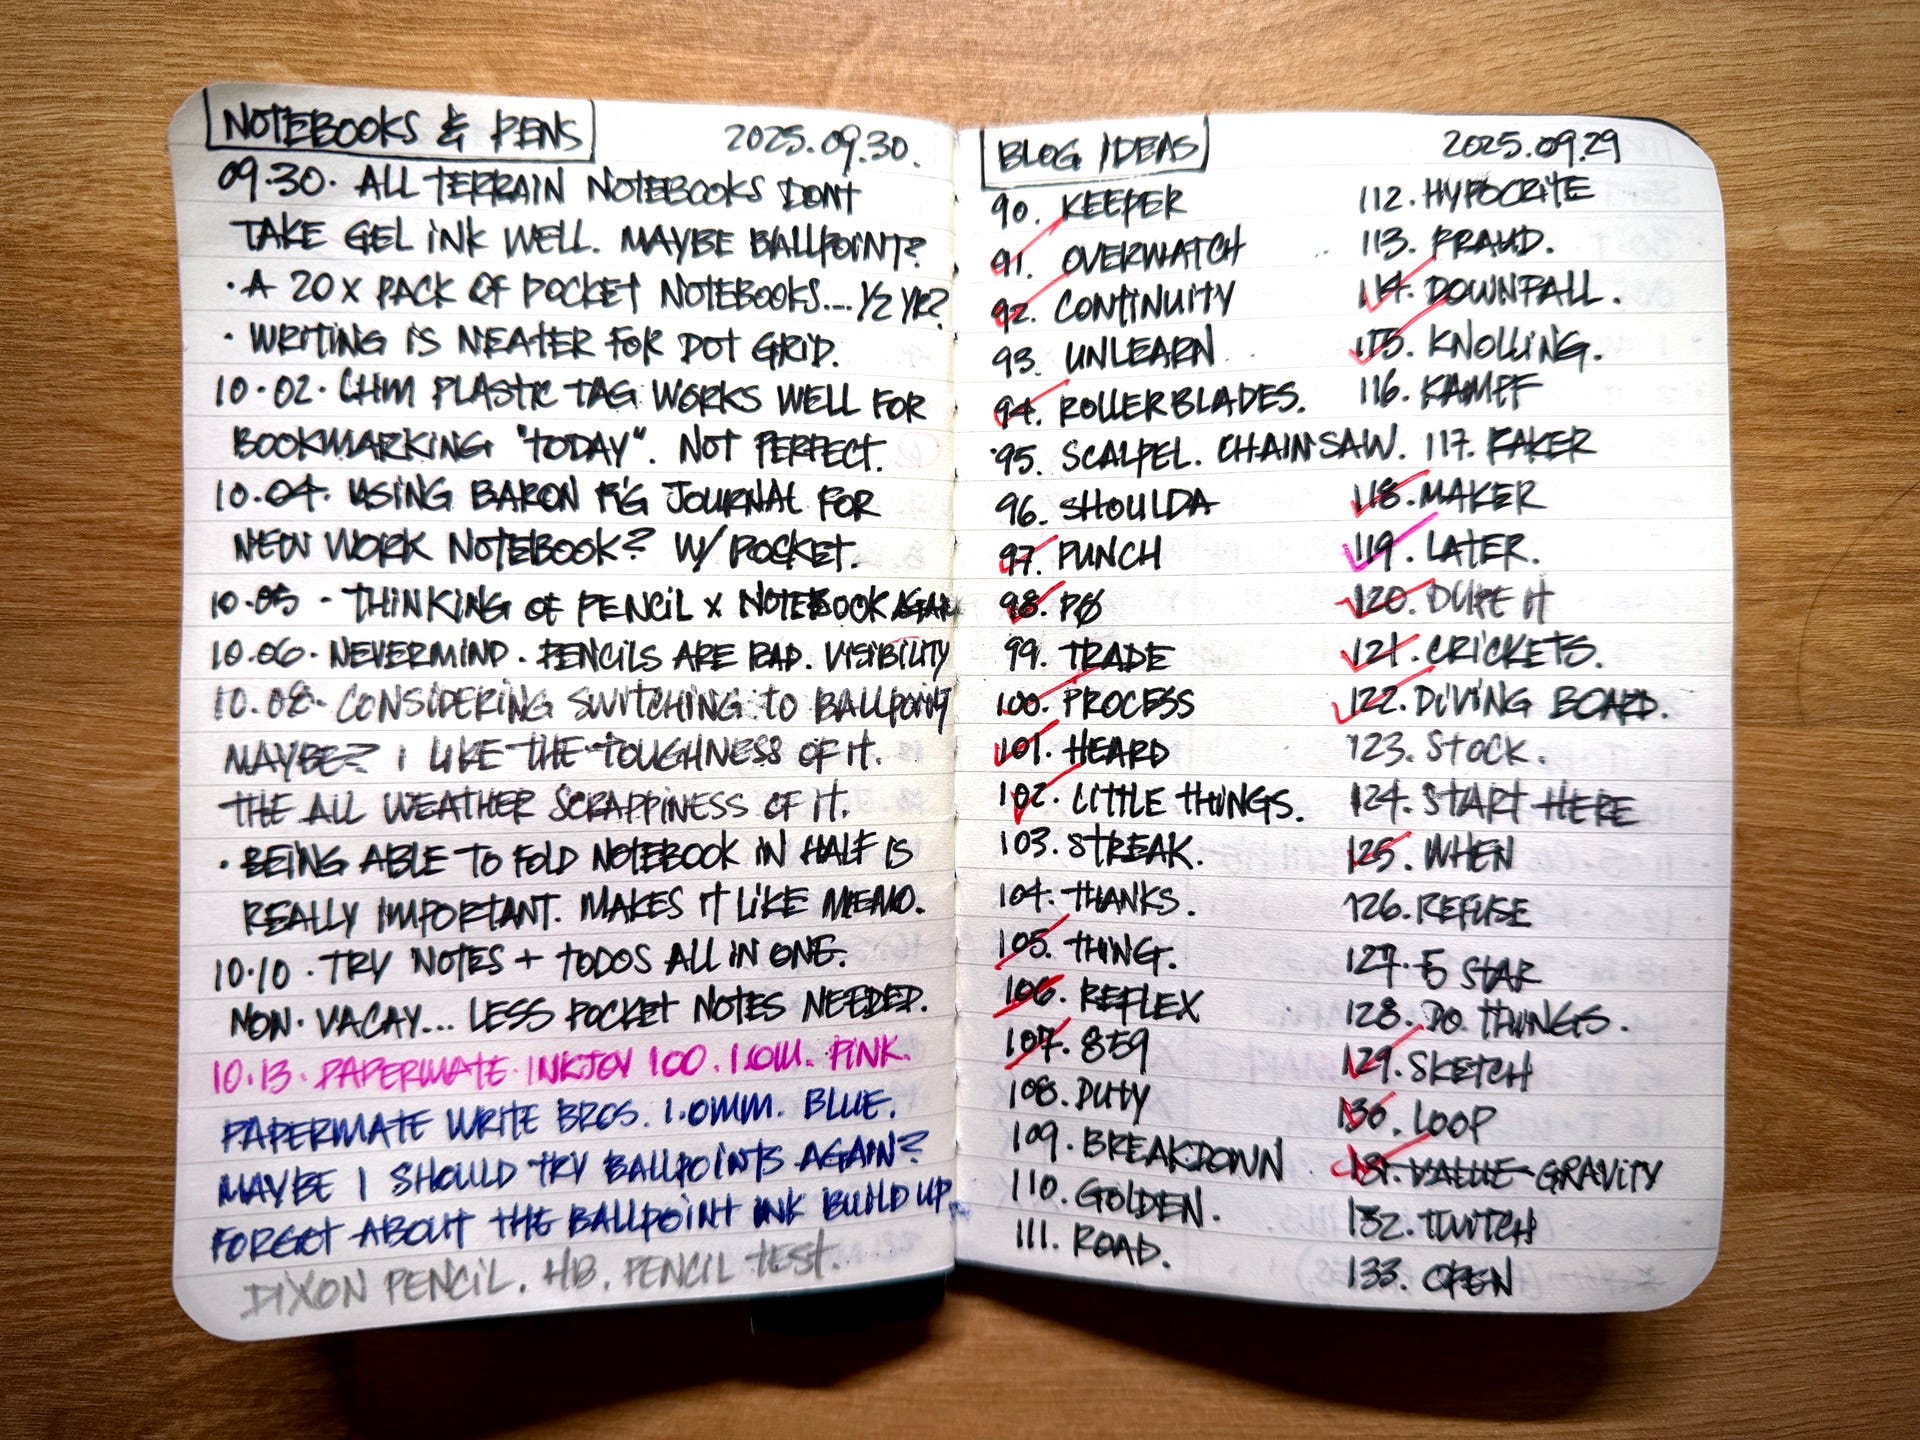 NOTEBOOKS & PENS 2025.09.30.
09.30. ALL TERRAIN NOTEBOOKS DONT
TAKE GEL INK WELL. MAYBE BALLPOINT?
· A 20 X PACK OF POCKET NOTEBOOKS... 1/2 YR?
· WRITING IS NEATER FOR DOT GRID.
10.02. CHM PLASTIC TAG WORKS WELL FOR
BOOKMARKING "TODAY". NOT PERFECT.
10.04. USING BARON FIG JOURNAL FOR
NEW WORK NOTEBOOK? W/ POCKET.
10.05 - THINKING OF PENCIL X NOTEBOOK AGAIN
10.06. NEVERMIND. PENCILS ARE BAD. VISIBILITY
10.08. CONSIDERING SWITCHING TO BALLPOINT
MAYBE? I LIKE THE TOUGHNESS OF IT.
THE ALL WEATHER SCRAPPINESS OF IT.
· BEING ABLE TO FOLD NOTEBOOK IN HALF IS
REALLY IMPORTANT. MAKES IT LIKE MEMO.
10.10. TRY NOTES + TODOS ALL IN ONE.
NON. VACAY... LESS POCKET NOTES NEEDED.
10.13. PAPERMATE INKJOY 100. 1.0M. PINK.
PAPERMATE WRITE BROS. 1.0MM. BLUE.
MAYBE I SHOULD TRY BALLPOINTS AGAIN?
FORGOT ABOUT THE BALLPOINT INK BUILD UP.
DIXON PENCIL. HB. PENCIL TEST.
BLOG IDEAS 2025.09.29
90. KEEPER
91. OVERWATCH
92. CONTINUITY
93. UNLEARN
94. ROLLERBLADES.
95. SCALPEL. CHAINSAW.
96. SHOULDA
97. PUNCH
98. PØ
99. TRADE
100. PROCESS
101. HEARD
102. LITTLE THINGS.
103. STREAK.
104. THANKS.
105. THING.
106. REFLEX
107. 859
108. DUTY
109. BREAKDOWN
110. GOLDEN.
111. ROAD.
112. HYPOCRITE
113. FRAUD.
114. DOWNFALL.
115. KNOLLING.
116. KAMPF
117. FAKER
118. MAKER
119. LATER.
120. DUPE IT
121. CRICKETS.
122. DIVING BOARD.
123. STOCK.
124. START HERE
125. WHEN
126. REFUSE
127. 5 STAR
128. DO THINGS.
129. SKETCH
130. LOOP
131. VALUE GRAVITY
132. TWITCH
133. OPEN